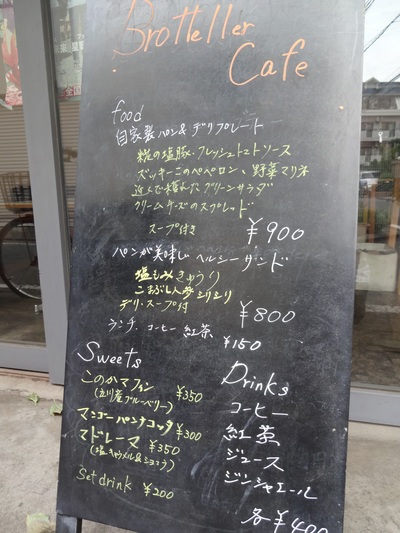 Brotteller
Cafe
food
自家製パン&デリプレート
糀の塩豚・フレッシュトマトソース
ズッキーニのペペロン、野菜マリネ
近くで穫れたグリーンサラダ
クリームチーズのスプレッド
スープ付き ¥900
パンが美味しいヘルシーサンド
塩もみきゅうり
こまぶし人参シリシリ
デリ・スープ付 ¥800
ランチ、コーヒー 紅茶 ¥150
Sweets
このかマフィン ¥350
(立川産ブルーベリー)
マンゴーパンナコッタ ¥300
マドレーヌ ¥350
(塩キャラメル&ショコラ)
Set drink ¥200
Drinks
コーヒー
紅茶
ジュース
ジンジャエール
各¥400